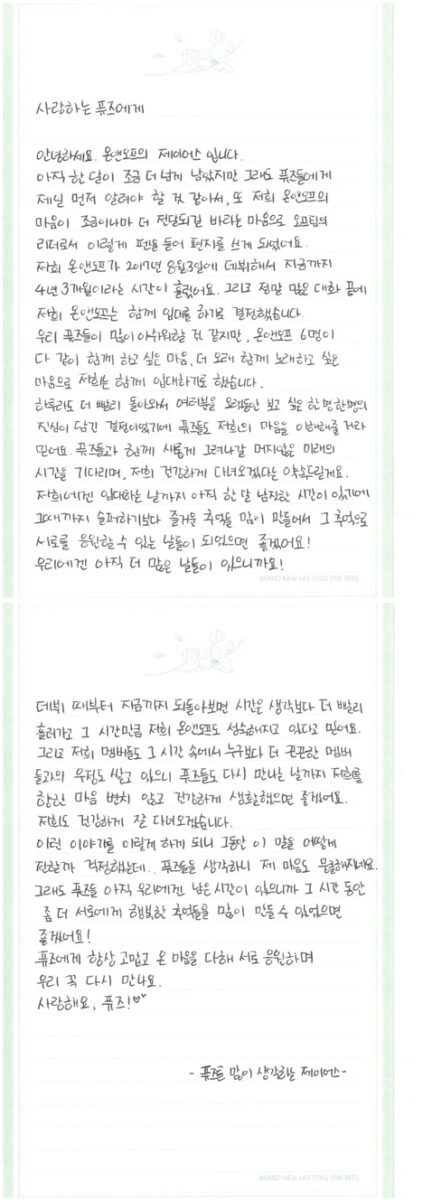 사랑하는 퓨즈에게
안녕하세요. 온앤오프의 제이어스 입니다.
아직 한 달이 조금 더 넘게 남았지만 그래도 퓨즈들에게
제일 먼저 알려야 할 것 같아서, 또 저희 온앤오프의
마음이 조금이나마 더 전달되길 바라는 마음으로 오프팀의
리더로서 이렇게 펜을 들어 편지를 쓰게 되었어요.
저희 온앤오프가 2017년 8월3일에 데뷔해서 지금까지
4년 3개월이라는 시간이 흘렀어요. 그리고 정말 많은 대화 끝에
저희 온앤오프는 함께 입대를 하기로 결정했습니다.
우리 퓨즈들이 많이 아쉬워할 것 같지만, 온앤오프 6명이
다 같이 함께 하고 싶은 마음, 더 오래 함께 노래하고 싶은
마음으로 저희는 함께 입대하기로 했습니다.
하루라도 더 빨리 돌아와서 여러분을 오랫동안 보고 싶은 한명한명의
진심이 담긴 결정이었기에 퓨즈들도 저희의 마음을 이해해줄 거라
믿어요. 퓨즈들과 함께 새롭게 그려나갈 머지않은 미래의
시간을 기다리며, 저희 건강하게 다녀오겠다는 약속드릴게요.
저희에겐 입대하는 날까지 아직 한 달 남짓한 시간이 있기에
그때까지 슬퍼하기보다 즐거운 추억들 많이 만들어서 그 추억으로
서로를 응원할 수 있는 날들이 되었으면 좋겠어요!
우리에겐 아직 더 많은 날들이 있으니까요!
BRAND NEW LIFE STYLE [THE RED]
데뷔 때부터 지금까지 되돌아보면 시간은 생각보다 더 빨리
흘러가고 그 시간만큼 저희 온앤오프도 성숙해지고 있다고 믿어요.
그리고 저희 멤버들도 그 시간 속에서 누구보다 더 끈끈한 멤버
들과의 우정도 쌓고 있으니 퓨즈들도 다시 만나는 날까지 저희를
향한 마음 변치 않고 건강하게 생활했으면 좋겠어요.
저희도 건강하게 잘 다녀오겠습니다.
이런 이야기를 이렇게 하게 되니 그동안 이 말을 어떻게
전할까 걱정했는데.. 퓨즈들을 생각하니 제 마음도 뭉클해지네요.
그래도 퓨즈들 아직 우리에겐 남은 시간이 있으니까 그 시간 동안
좀 더 서로에게 행복한 추억들을 많이 만들 수 있었으면
좋겠어요!
퓨즈에게 항상 고맙고 온 마음을 다해 서로 응원하며
우리 꼭 다시 만나요.
사랑해요, 퓨즈!♡♡
- 퓨즈를 많이 생각하는 제이어스-
BRAND NEW LIFE STYLE [THE RED]